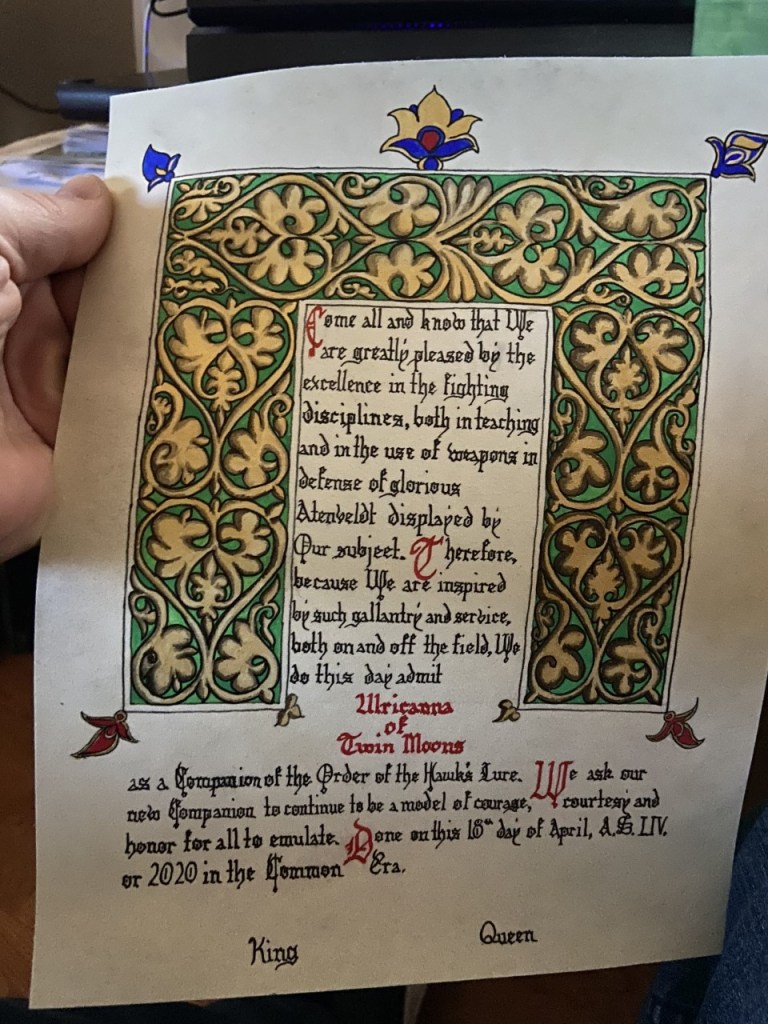 Come all and know that We
are greatly pleased by the
excellence in the fighting
disciplines, both in teaching
and in the use of weapons in
defense of glorious
Atenveldt displayed by
Our subject. Therefore,
because We are inspired
by such gallantry and service,
both on and off the field, We
do this day admit
Ulricanna
of
Twin Moons
as a Companion of the Order of the Hawk's Lure. We ask our
new Companion to continue to be a model of courage, courtesy and
honor for all to emulate. Done on this 18th day of April, A.S. LIV.
or 2020 in the Common Era.
King
Queen